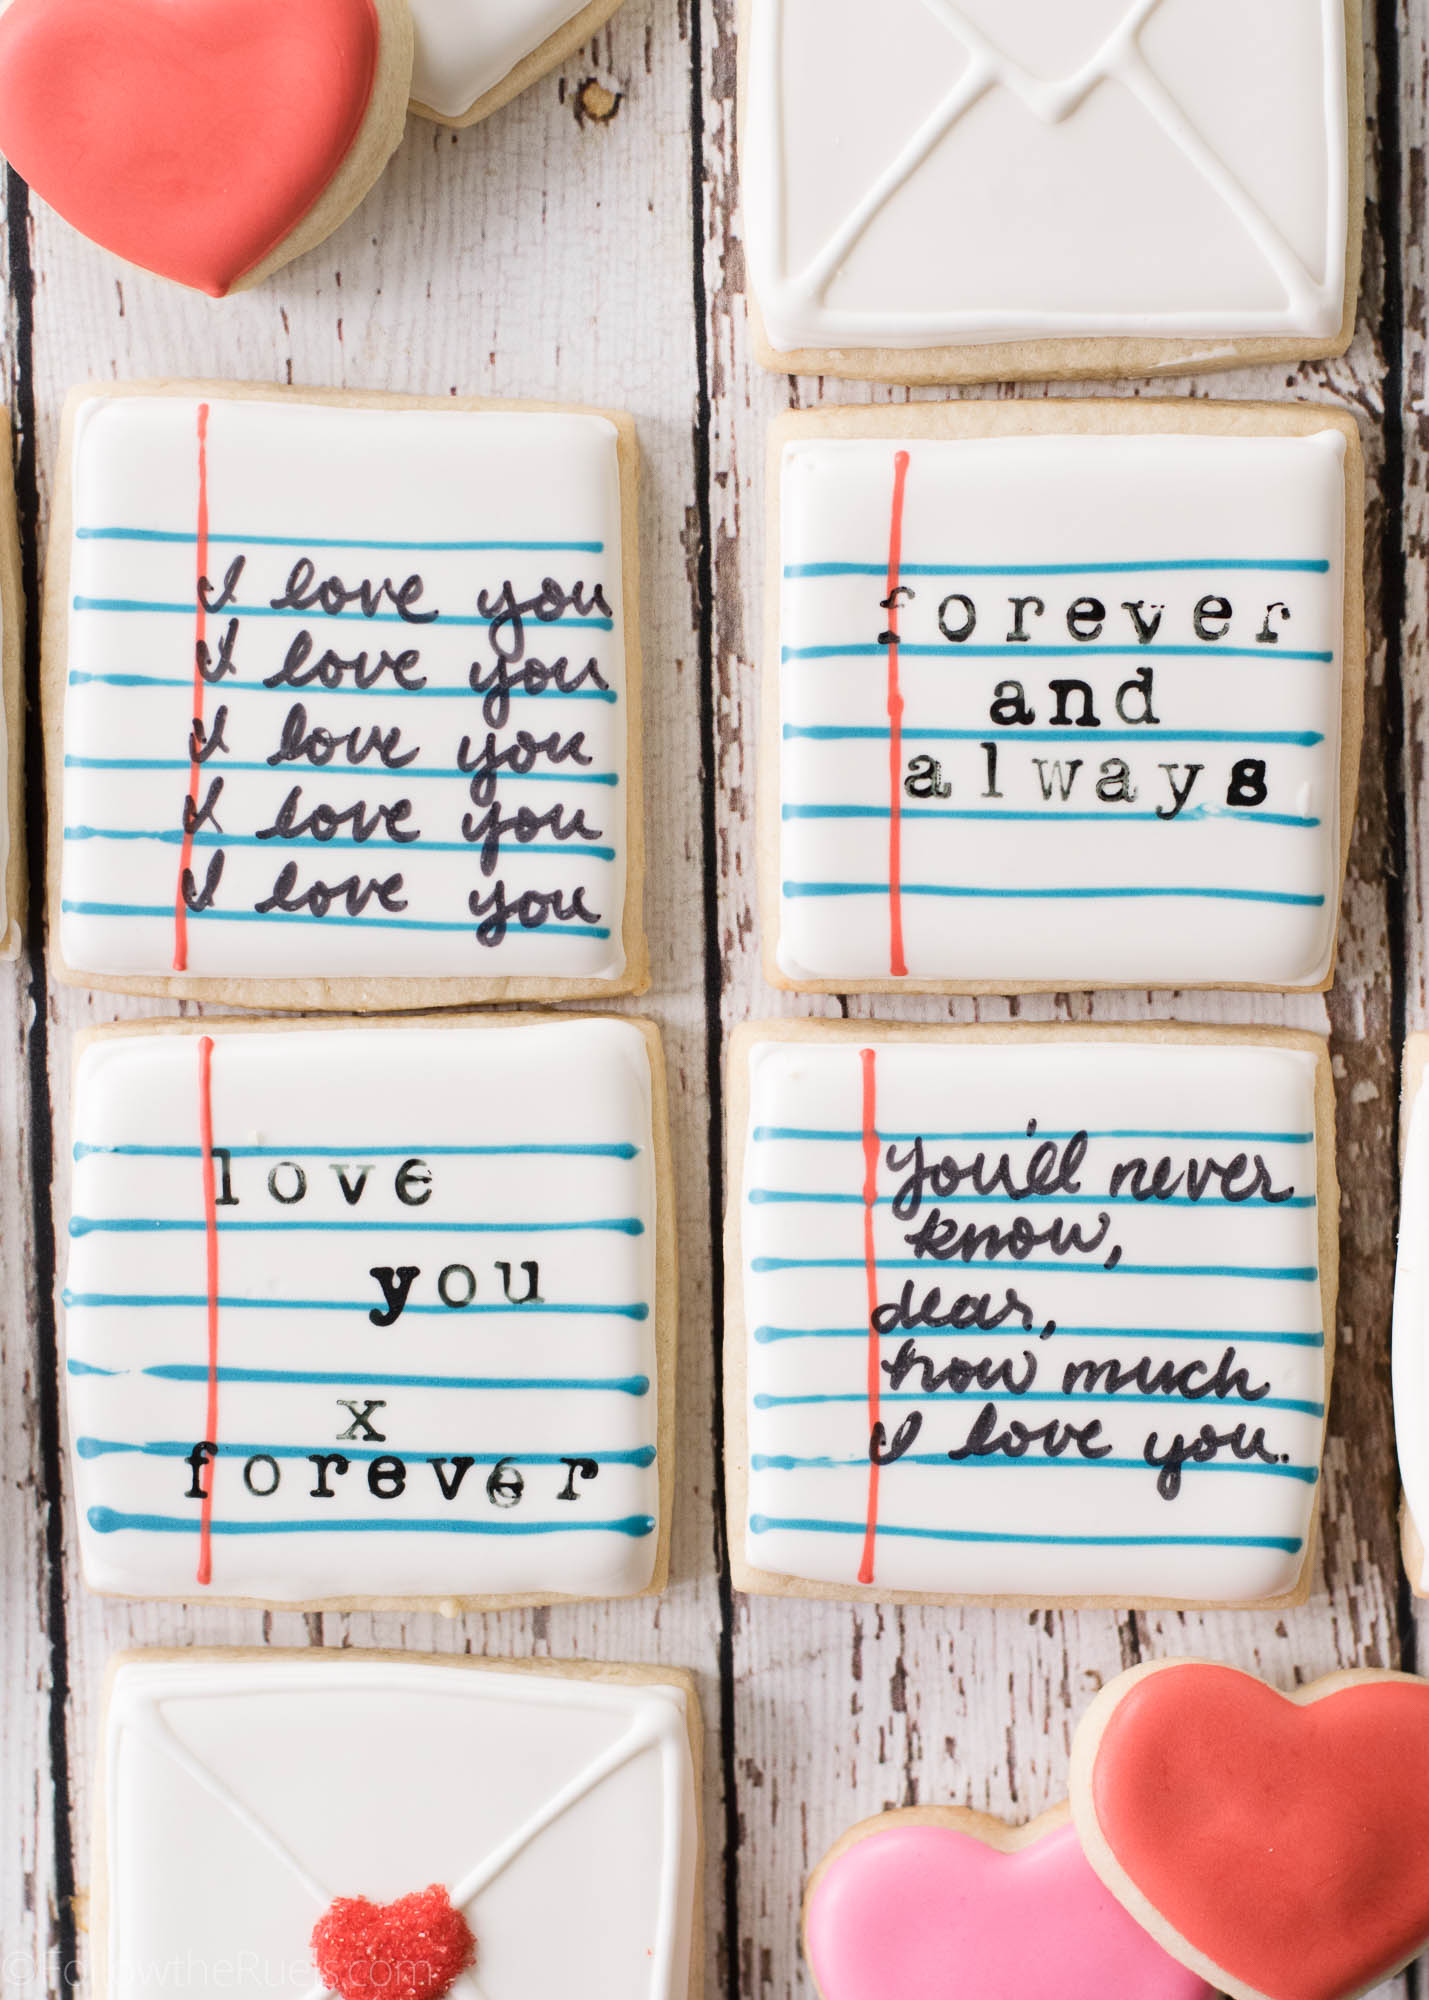 I love you
I love you
I love you
I love you
I love you
forever
and
always
love
you
x
forever
you'll never
know,
dear,
how much
I love you.
©FollowtheRuels.com